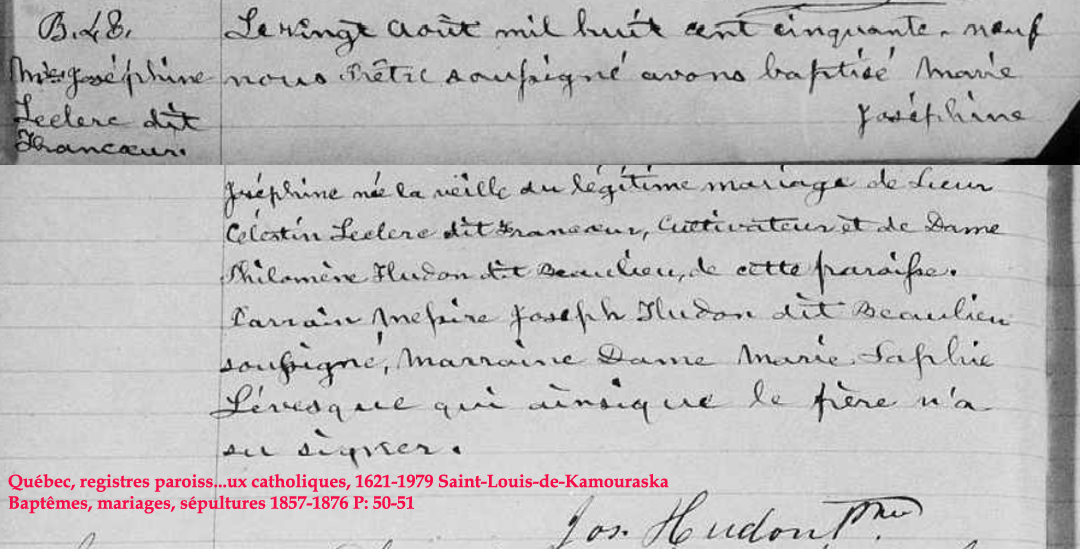 B. 48.
Mie Joséphine
Leclerc dit
Francœur.
Le vingt Août mil huit cent cinquante-neuf
nous Prêtre soussigné avons baptisé Marie
Joséphine
Joséphine née la veille du légitime mariage de Sieur
Célestin Leclerc dit Francœur, Cultivateur et de Dame
Philomène Hudon dit Beaulieu, de cette paroisse.
Parrain Messire Joseph Hudon dit Beaulieu
soussigné, Marraine Dame Marie Sophie
Lévesque qui ainsi que le père n'a
su signer.
Québec, registres paroiss...ux catholiques, 1621-1979 Saint-Louis-de-Kamouraska
Baptêmes, mariages, sépultures 1857-1876 P: 50-51
Jos. Hudon Ptre